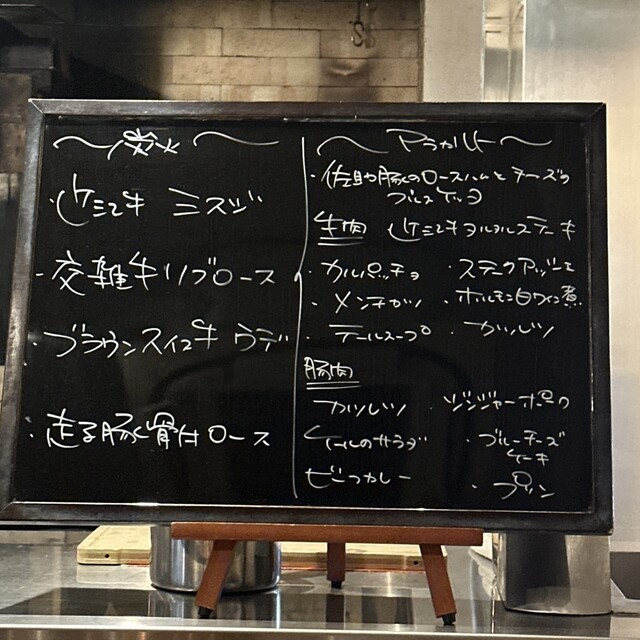 〜炭火〜
・ジャージー牛 ミスジ
・交雑牛リブロース
・ブラウンスイス牛 ウデ
・走る豚 骨付ロース
〜アラカルト〜
・佐助豚のロースハムとチーズの
ブルスケッタ
牛肉
タルタルステーキ
・カルパッチョ
・ステークアッシェ
・メンチカツ
・ホルモン白ワイン煮
・テールスープ
・カツレツ
豚肉
カツレツ
・ジンジャーポーク
ケールのサラダ
・ブルーチーズ
ケーキ
カレー
・プリン